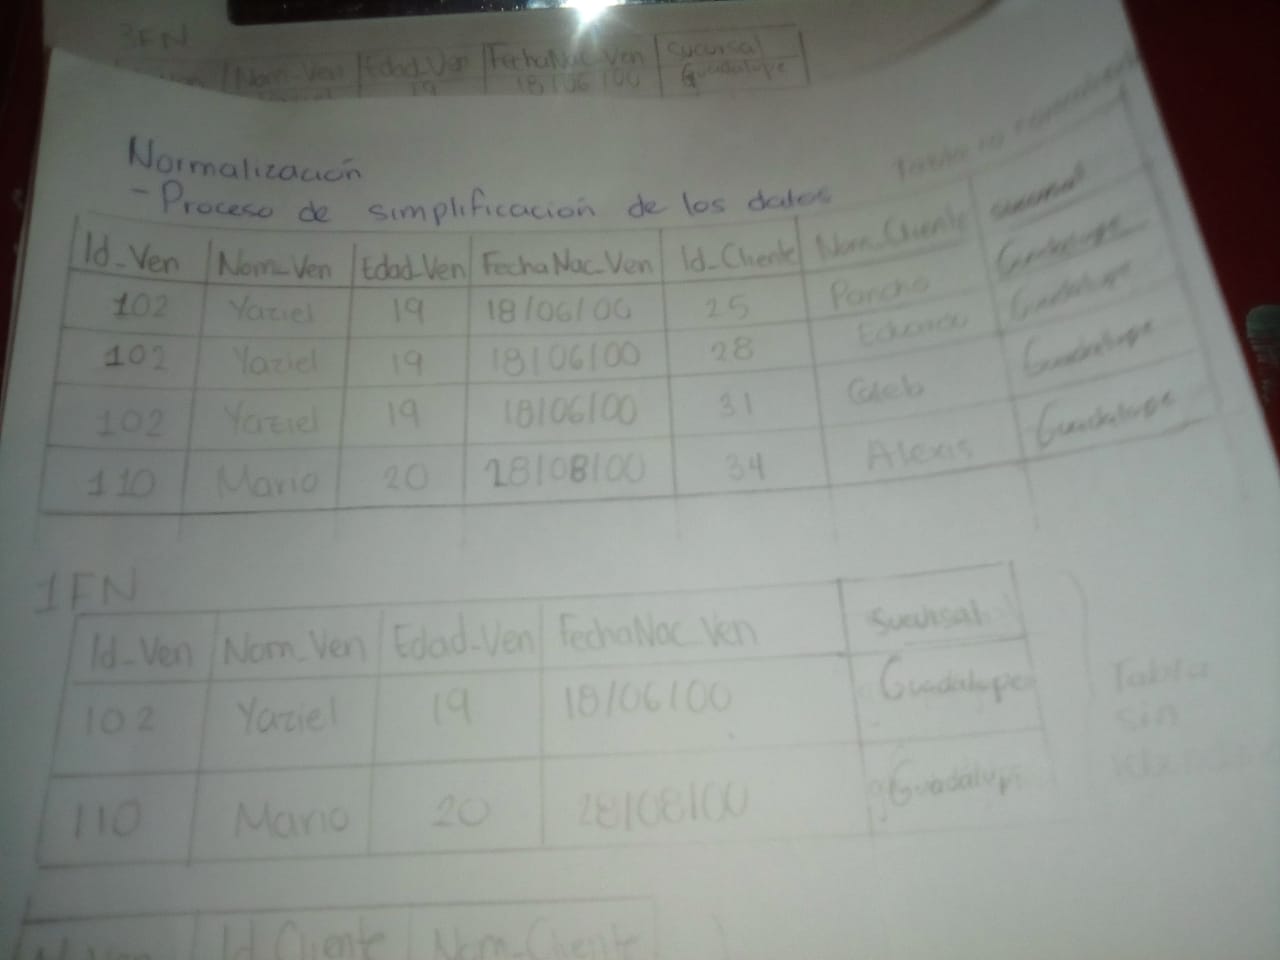 3FN
Nom_Ven Edad_Ven FechaNac_Ven Sucursal
19 18/06/00 Guadalupe
Normalización
- Proceso de simplificación de los datos
Id_Ven Nom_Ven Edad_Ven FechaNac_Ven Id_Cliente Nom_Cliente sucursal
102 Yaziel 19 18/06/00 25 Pancho Guadalupe
102 Yaziel 19 18/06/00 28 Guadalupe
102 Yaziel 19 18/06/00 31 Caleb Guadalupe
110 Mario 20 28/08/00 34 Alexis Guadalupe
1FN
Id_Ven Nom_Ven Edad_Ven FechaNac_Ven Sucursal
102 Yaziel 19 18/06/00 Guadalupe
110 Mario 20 28/08/00 Guadalupe
Tabla
sin
Id_Cliente Nom_Cliente